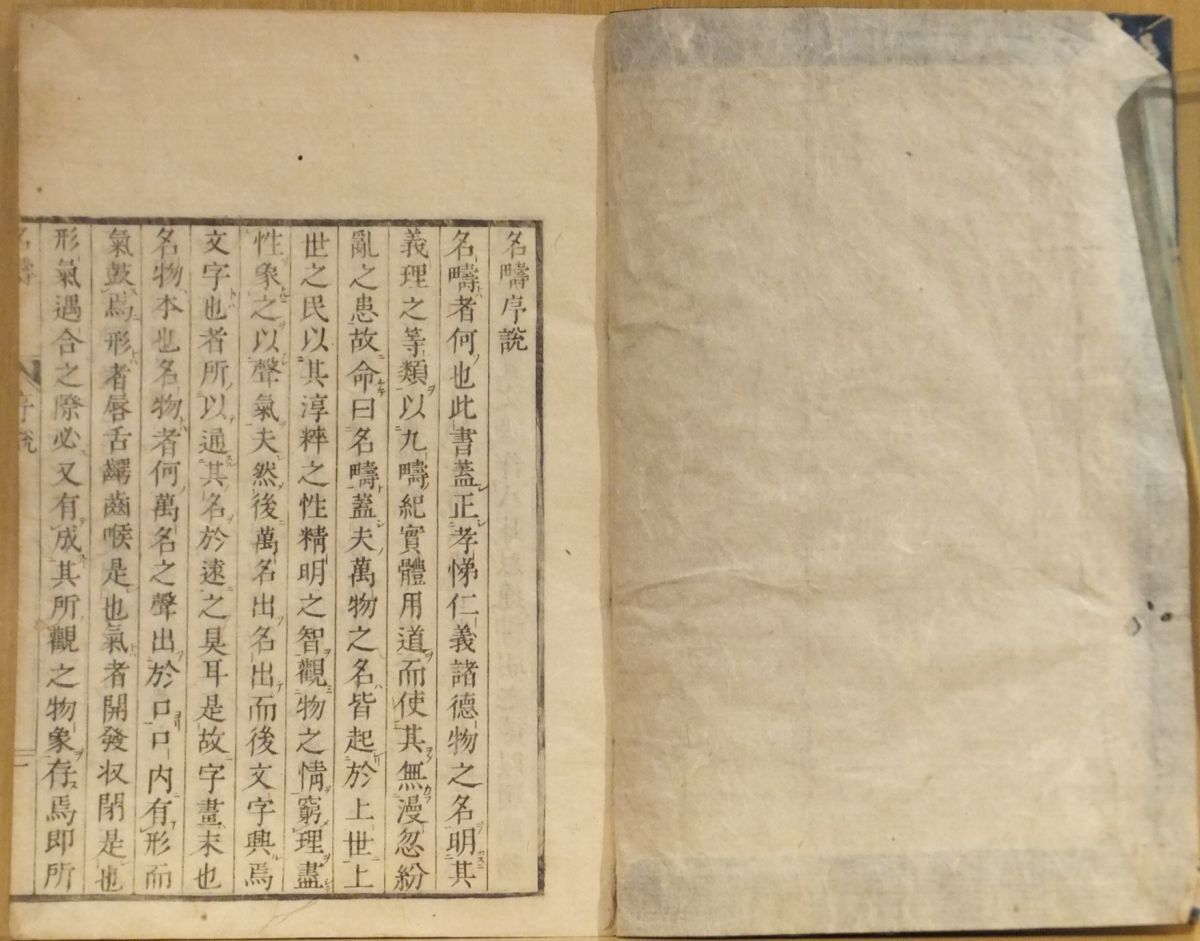 名疇序説
名疇者何也此書蓋正孝悌仁義諸德物之名明其
義理之等類以九疇紀實體用道而使其無漫忽紛
亂之患故命曰名疇蓋夫萬物之名皆起於上世上
世之民以其淳粹之性精明之智觀物之情窮理盡
性象之以聲氣夫然後萬名出名出而後文字興焉
文字也者所以通其名於遠之具耳是故字畫末也
名物本也名物者何萬名之聲出於口口内有形而
氣鼓焉形者唇舌齶齒喉是也氣者開發収閉是也
形氣遇合之際必又有成其所觀之物象存焉即所
名疇
序説